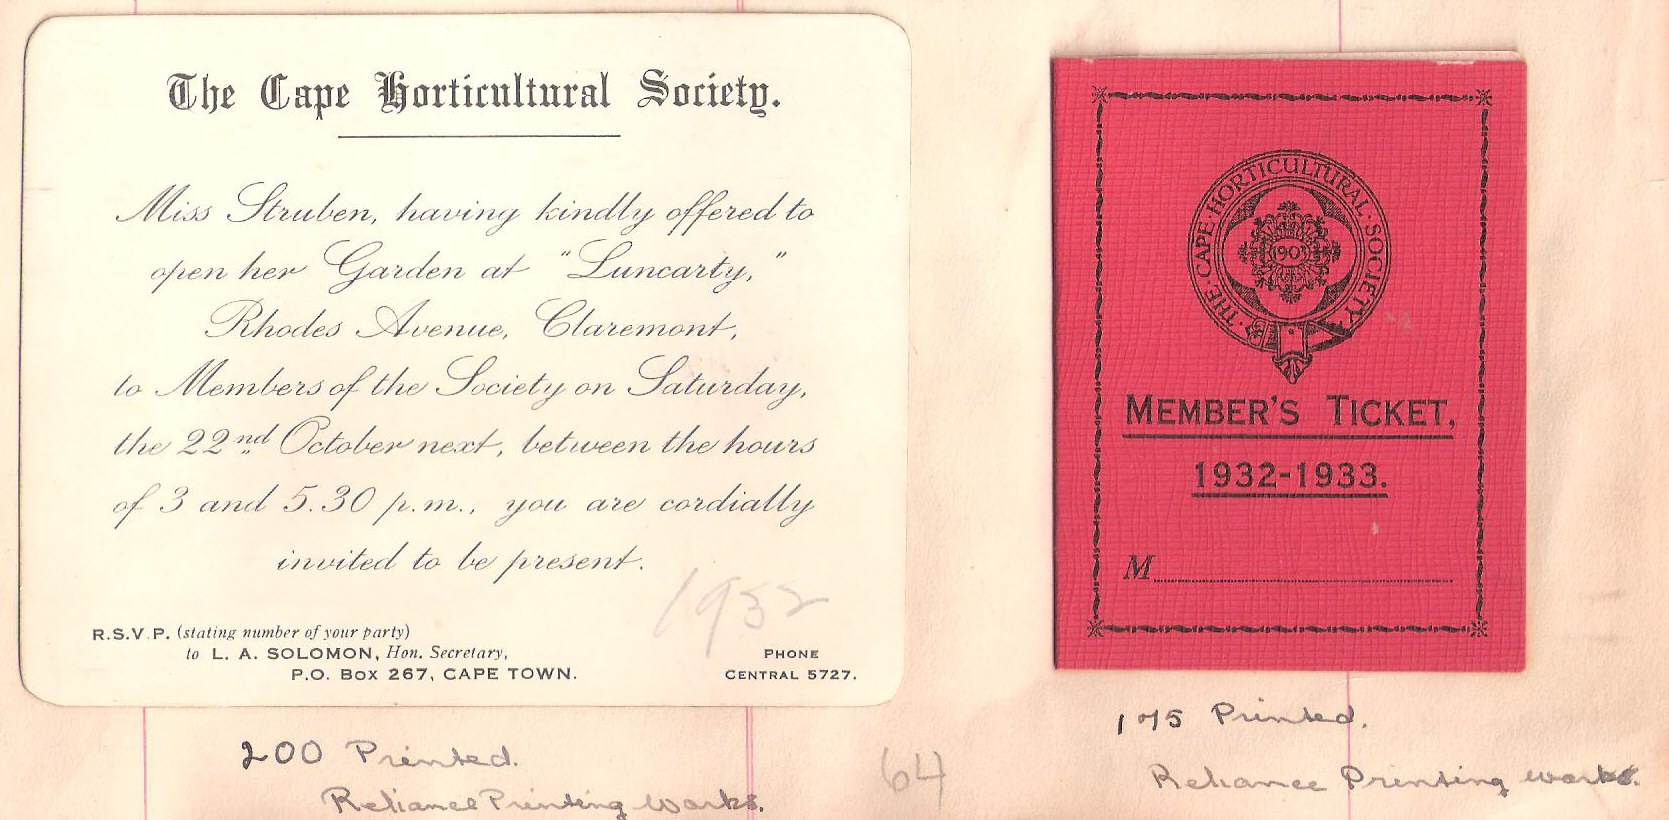 The Cape Horticultural Society.
Miss Struben, having kindly offered to
open her Garden at "Luncarty,"
Rhodes Avenue, Claremont,
to Members of the Society on Saturday,
the 22nd October next, between the hours
of 3 and 5.30 p.m., you are cordially
invited to be present.
1932
R.S.V.P. (stating number of your party)
to L. A. SOLOMON, Hon. Secretary,
P.O. BOX 267, CAPE TOWN.
PHONE
CENTRAL 5727.
200 Printed.
Reliance Printing Works.
64
· THE · CAPE · HORTICULTURAL · SOCIETY ·
MEMBER'S TICKET,
1932-1933.
M
175 Printed.
Reliance Printing works.